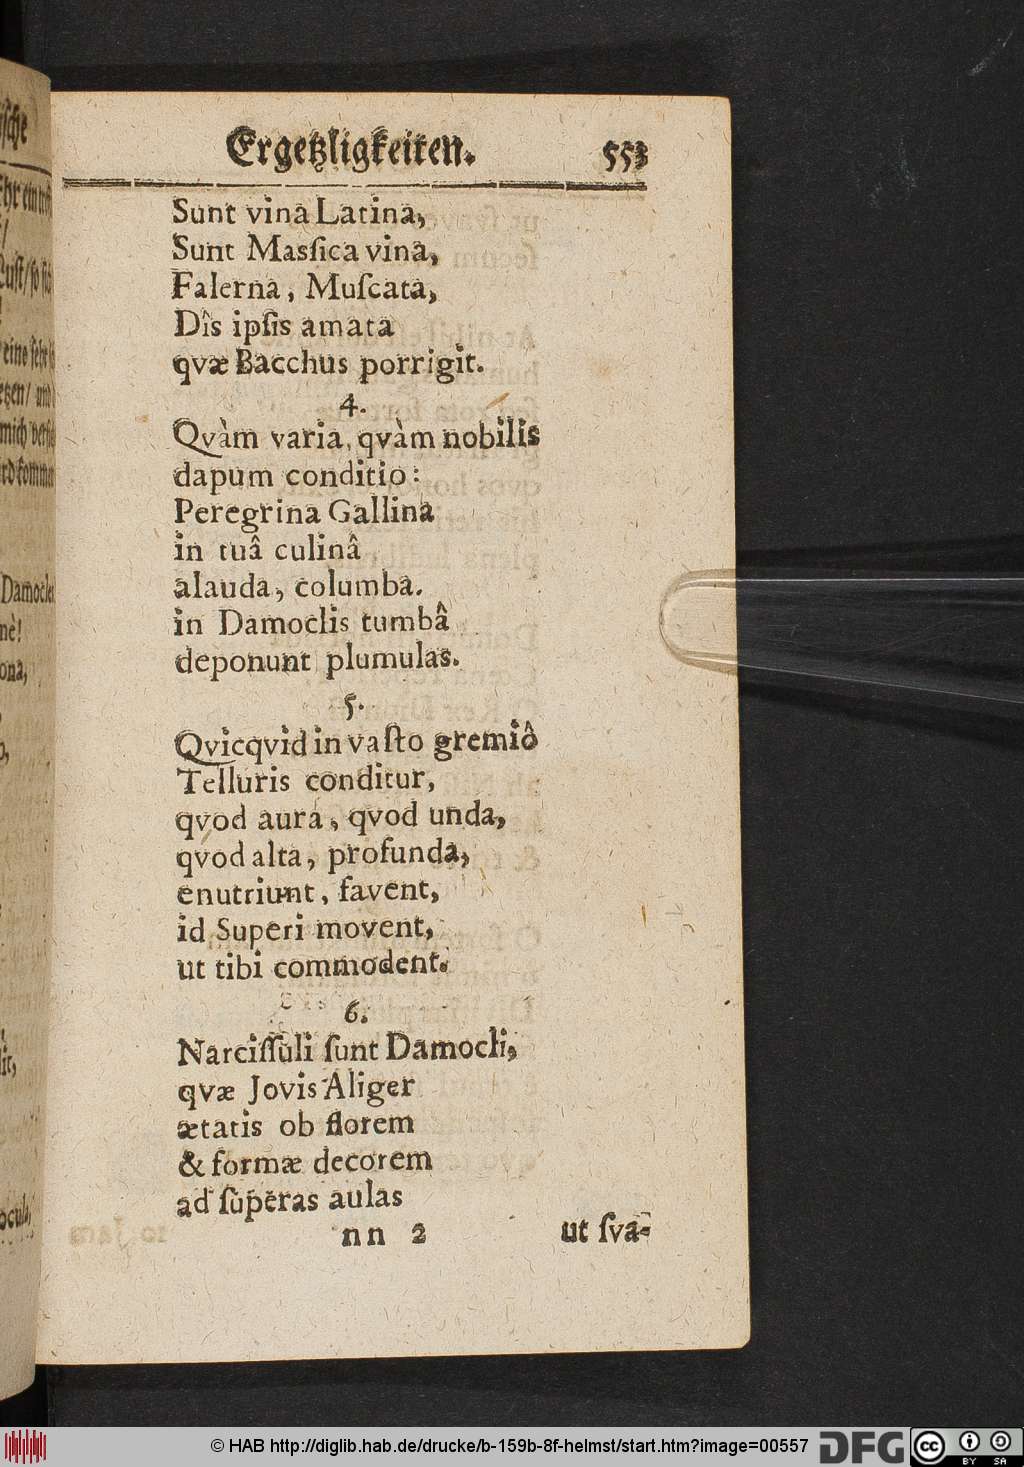 Ergetzligkeiten. 553
Sunt vina Latina,
Sunt Masſica vina,
Falerna, Muſcata,
Dîs ipſis amata
qvæ Bacchus porrigit.
4.
Qvàm varia, qvàm nobilis
dapum conditio:
Peregrina Gallina
in tuâ culinâ
alauda, columba.
in Damoclis tumbâ
deponunt plumulas.
5.
Qvicqvid in vaſto gremiô
Telluris conditur,
qvod aura, qvod unda,
qvod alta, profunda,
enutriunt, favent,
id Superi movent,
ut tibi commodent.
6.
Narciſſuli ſunt Damocli,
qvæ Jovis Aliger
ætatis ob florem
& formæ decorem
ad ſuperas aulas
nn 2 ut ſva-
© HAB http://diglib.hab.de/drucke/b-159b-8f-helmst/start.htm?image=00557
DFG
cc BY SA